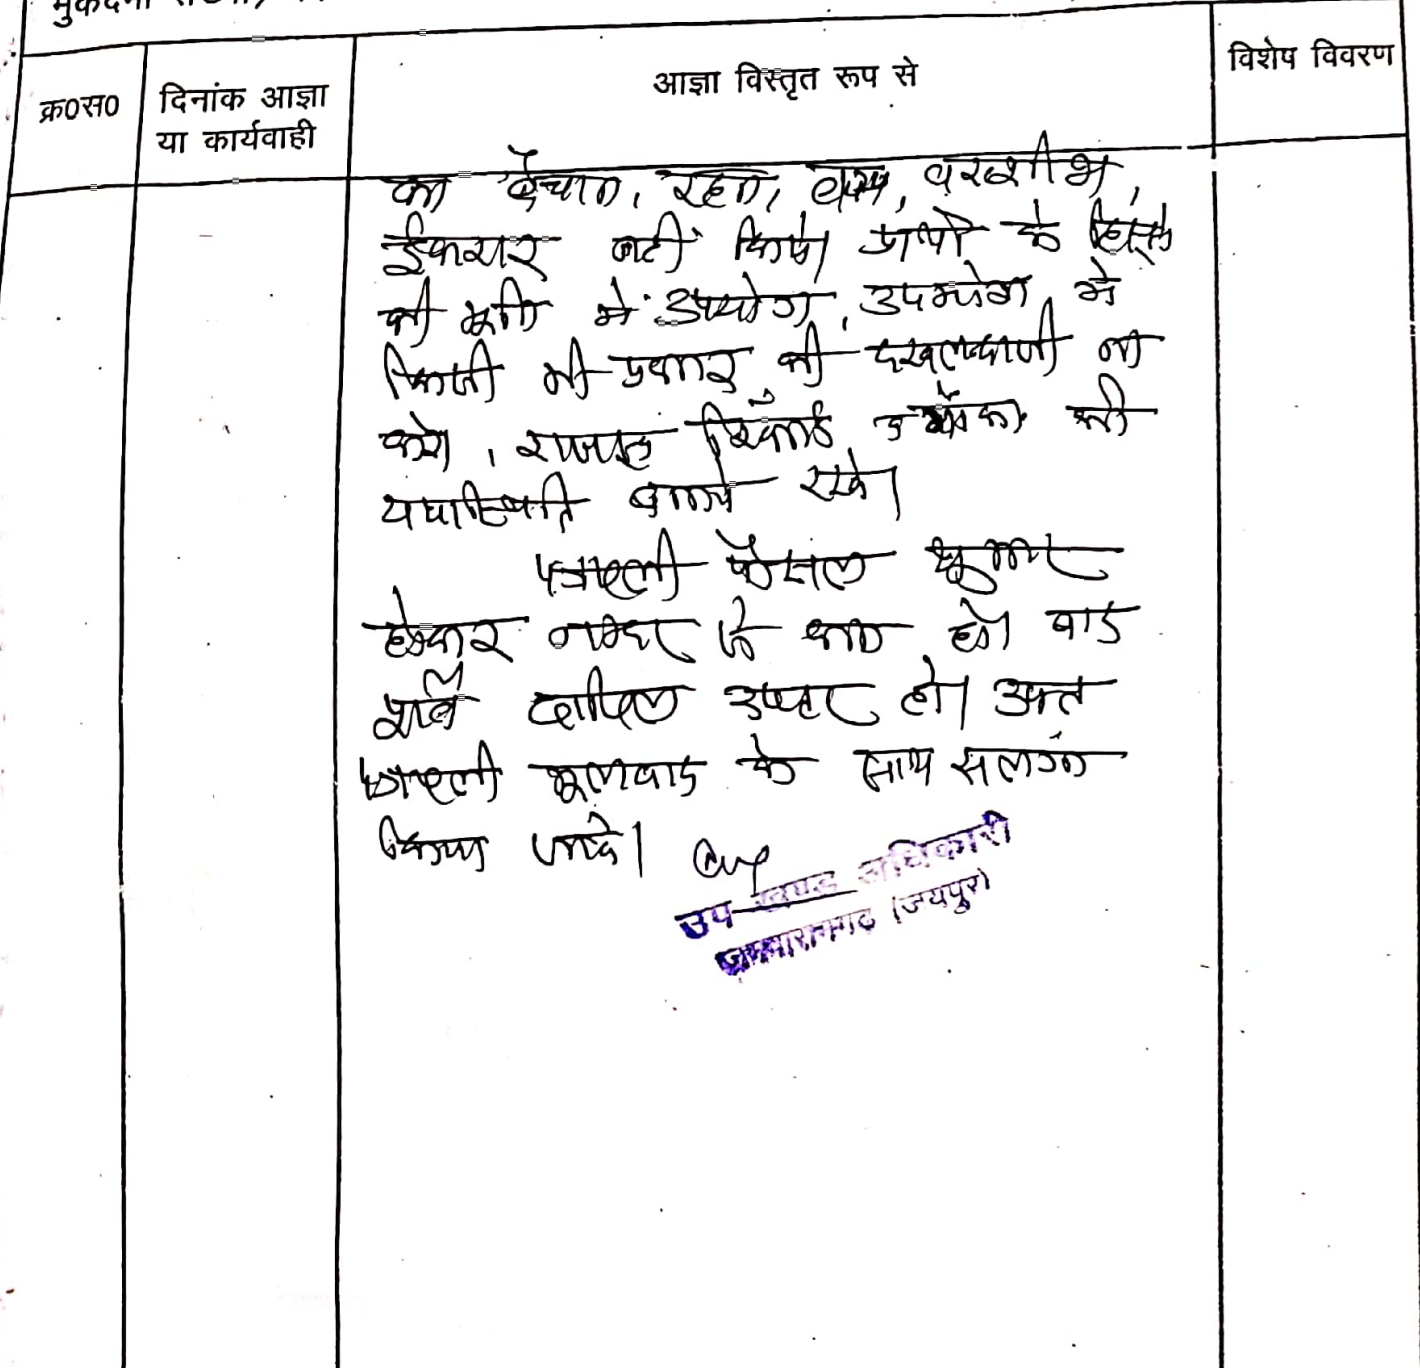 मुकदमा
क्र०स०
दिनांक आज्ञा
या कार्यवाही
आज्ञा विस्तृत रूप से
विशेष विवरण
का बैचान, रहन, वयय, वख्शीश,
ईकरार नहीं किये। प्रार्थी के हिस्से
की भूमि में उपयोग, उपभोग में
किसी भी प्रकार की दखलन्दाजी ना
करे। राजस्व रिकार्ड व मौका की
यथास्थिति बनाये रखे।
पत्रावली फैसल शुमार
होकर नम्बर से कम हो। बाद
दाखिल दफ्तर हो। उक्त
पत्रावली मूलवाद के साथ सलग्न
किया जावे।
उप खण्ड अधिकारी
जमवारामगढ (जयपुर)